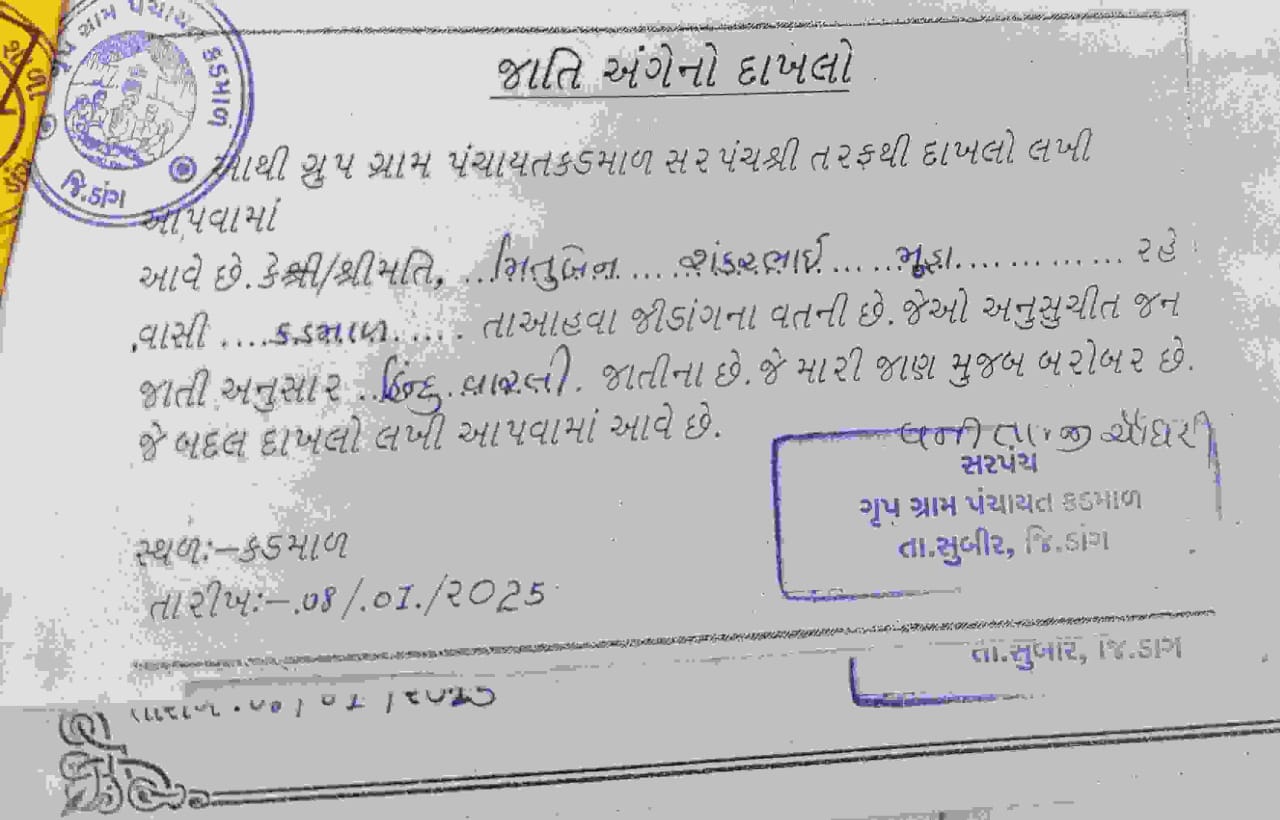 ગ્રુપ ગ્રામ પંચાયત કડમાળ
જિ.ડાંગ
જાતિ અંગેનો દાખલો
આથી ગ્રુપ ગ્રામ પંચાયતકડમાળ સરપંચશ્રી તરફથી દાખલો લખી
આપવામાં
આવે છે. કેશ્રી/શ્રીમતિ, ...મિતુબેન .... શંકરભાઈ ......મૂહા............. રહે
.વાસી ....કડમાળ..... તાઆહવા જીડાંગના વતની છે. જેઓ અનુસુચીત જન
જાતી અનુસાર ..હિન્દુ. વારલી. જાતીના છે. જે મારી જાણ મુજબ બરોબર છે.
જે બદલ દાખલો લખી આપવામાં આવે છે.
વનીતા.જી ચૌધરી
સરપંચ
ગૃપ ગ્રામ પંચાયત કડમાળ
તા.સુબીર, જિ.ડાંગ
સ્થળ:-કડમાળ
તારીખ:-.08/.01./૨૦25
તા.સુબીર, જિ.ડાંગ